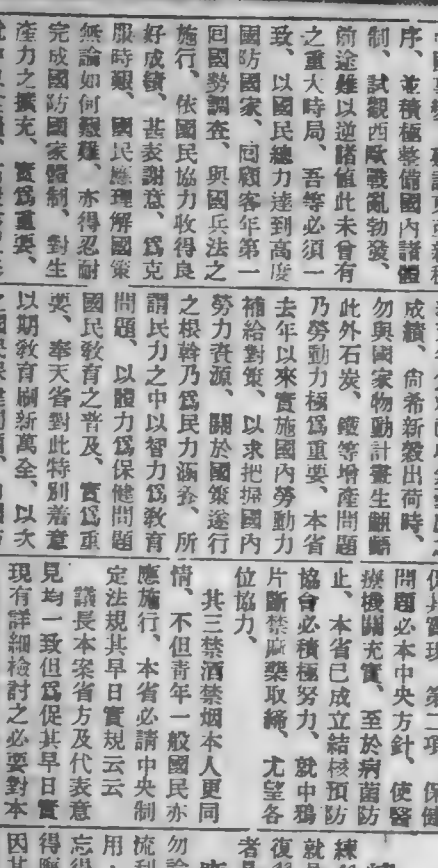 序、並積極整備國內諸體
制、試觀西歐戰亂勃發、
前途難以逆睹值此未曾有
之重大時局、吾等必須一
致、以國民總力達到高度
國防國家、回顧客年第一
回國勢調查、與國兵法之
施行、依國民協力收得良
好成績、甚表謝意、爲克
服時艱、國民應理解國策
無論如何艱難、亦得忍耐
完成國防國家體制、對生
產力之擴充、實爲重要、
成績、尙希新穀出荷時、
勿與國家物動計畫生齟齬
此外石炭、鐵等增產問題
乃勞動力極爲重要、本省
去年以來實施國內勞動力
補給對策、以求把握國內
勞力資源、關於國策遂行
之根幹乃爲民力涵養、所
謂民力之中以智力爲敎育
問題、以體力爲保健問題
國民敎育之普及、實爲重
要、奉天省對此特別着意
以期敎育刷新萬全、以次
促其實現、第二項 保健
問題必本中央方針、使醫
療機關充實、至於病菌防
止、本省已成立結核預防
協會必積極努力、就中鴉
片斷禁麻藥取締、尤望各
位協力、
其三禁酒禁烟本人更同
情、不但青年一般國民亦
應施行、本省必請中央制
定法規其早日實規云云
議長本案省方及代表意
見均一致但爲促其早日實
現有詳細檢討之必要對本
練
就
復
者
勿論
流利
用
忘得
得
因其